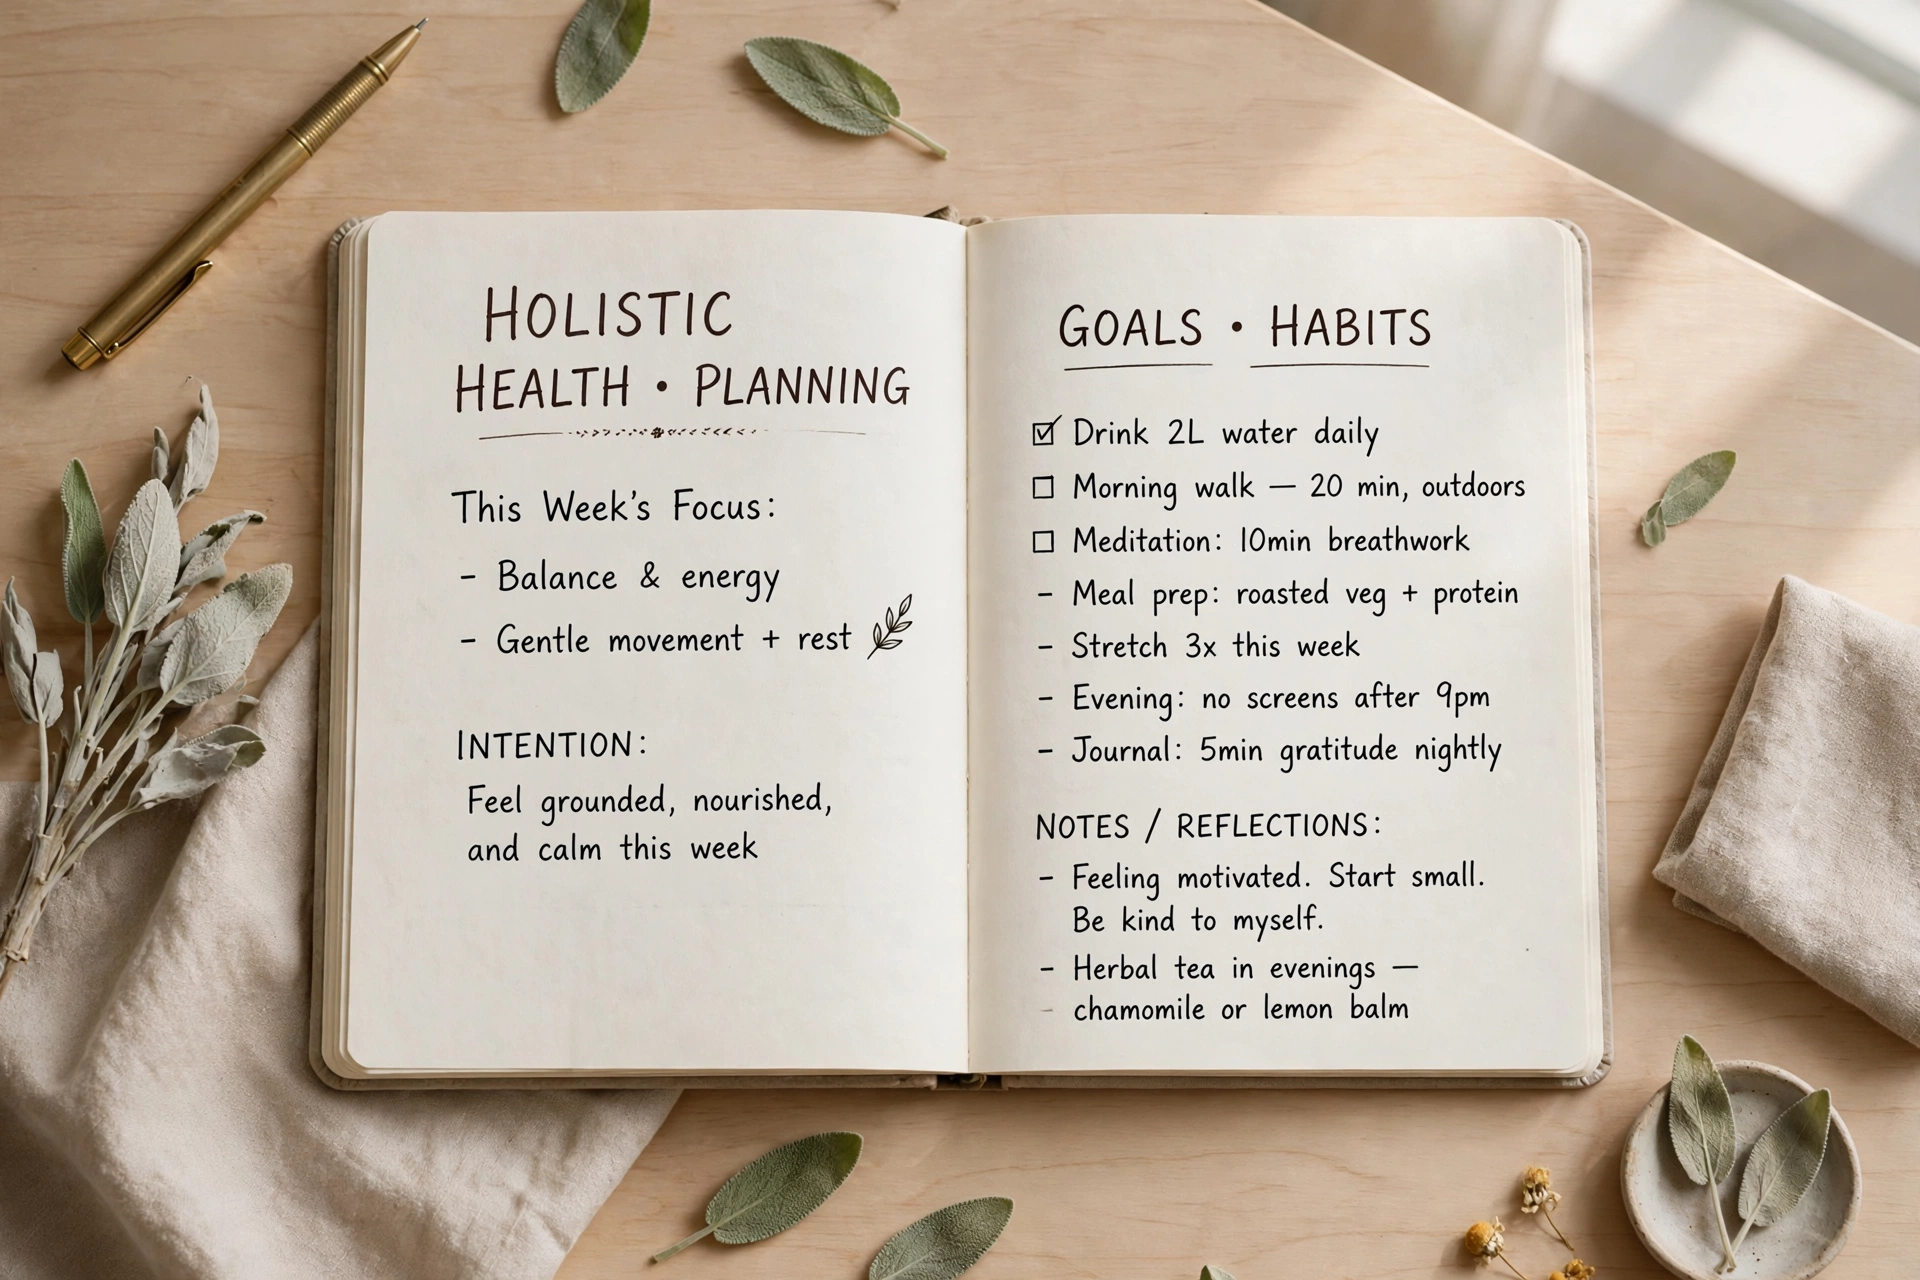 HOLISTIC
HEALTH • PLANNING
This Week's Focus:
- Balance & energy
- Gentle movement + rest
INTENTION:
Feel grounded, nourished,
and calm this week
GOALS • HABITS
☑ Drink 2L water daily
☐ Morning walk — 20 min, outdoors
☐ Meditation: 10min breathwork
- Meal prep: roasted veg + protein
- Stretch 3x this week
- Evening: no screens after 9pm
- Journal: 5min gratitude nightly
NOTES / REFLECTIONS:
- Feeling motivated. Start small.
Be kind to myself.
- Herbal tea in evenings —
- chamomile or lemon balm